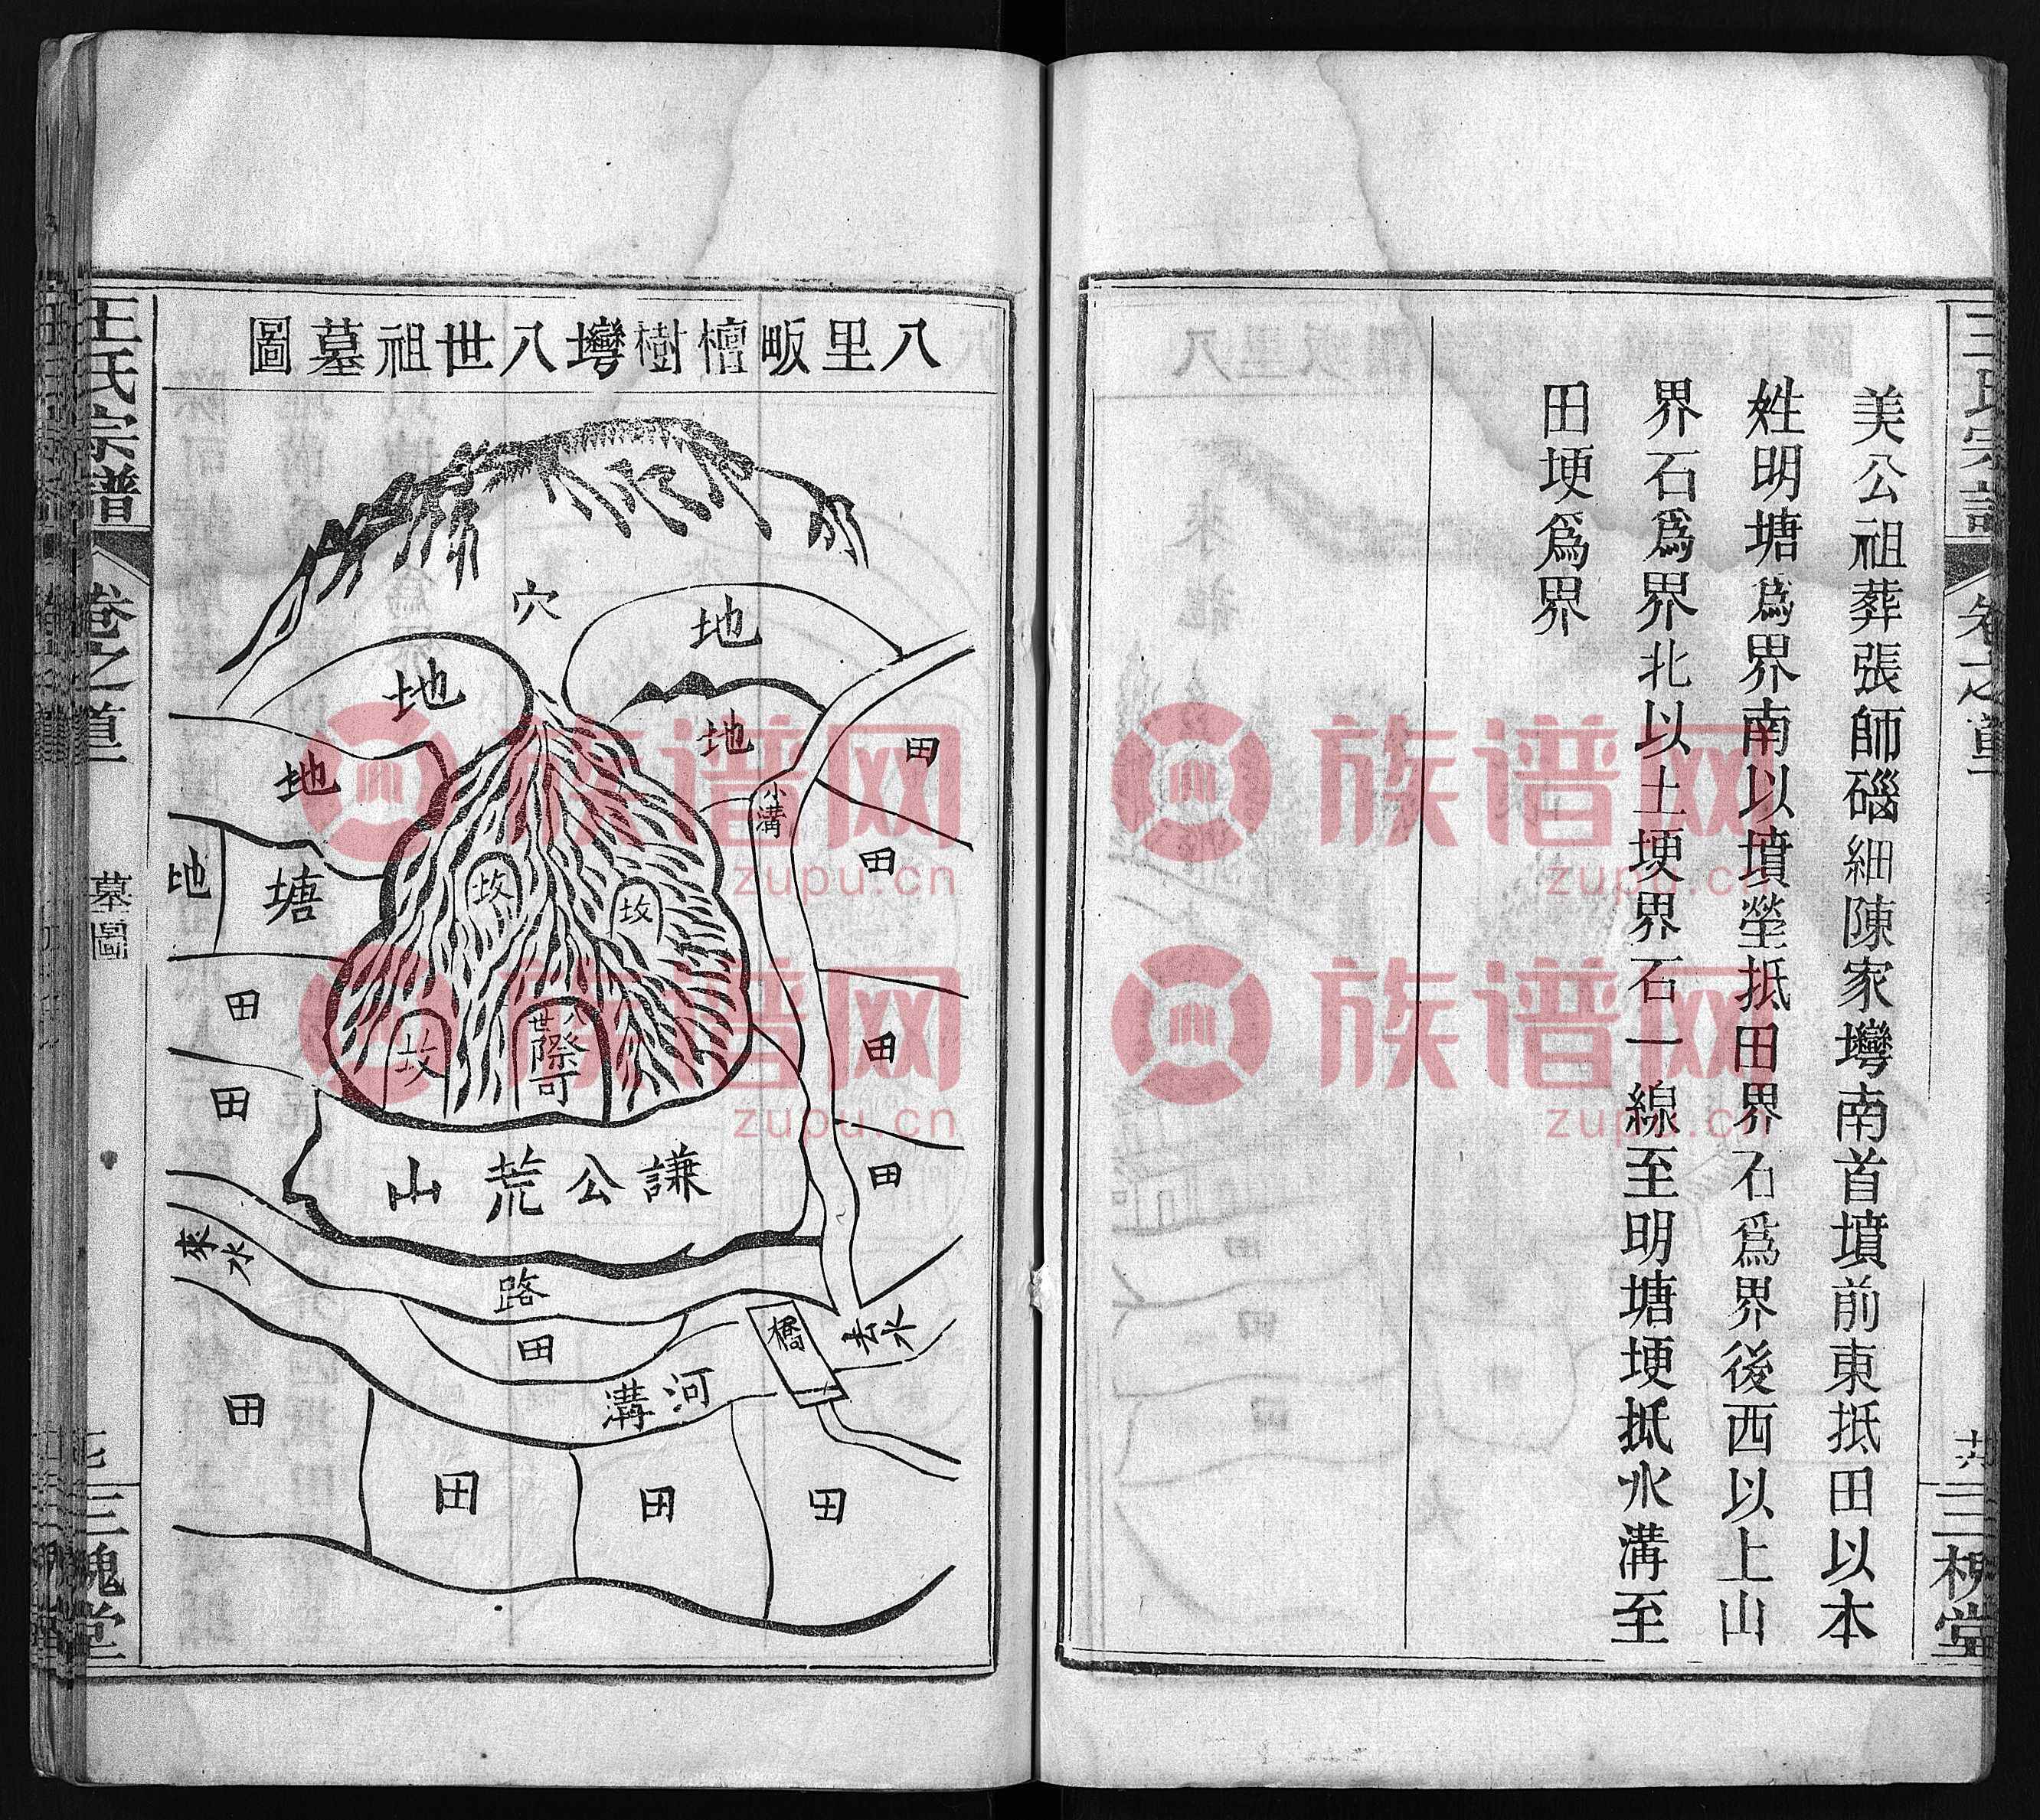 美公祖葬張師碯細陳家塆南首墳前東抵田以本
姓明塘爲界南以墳塋抵田界石爲界後西以上山
界石爲界北以土埂界石一線至明塘埂抵水溝至
田埂爲界
三槐堂
八里畈檀樹塆八世祖墓圖
穴
地
地
地
地
地
塘
小溝
田
田
田
田
坟
坟
坟
八世
際可
田
田
謙公荒山
來水
路
田
橋
去水
河溝
田
田
田
田
王氏宗譜
卷之首
墓圖
三槐堂
族谱网
zupu.cn
族谱网
zupu.cn
族谱网
zupu.cn
族谱网
zupu.cn